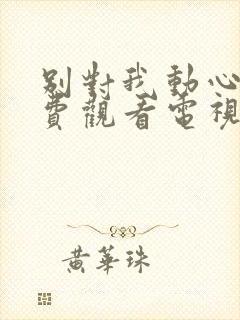 別對我動心
費觀看電視
黃華珠